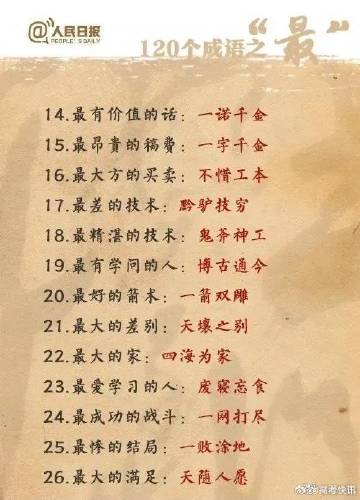 @人民日报
PEOPLE'S DAILY
120个成语之“最”
14.最有价值的话：一诺千金
15.最昂贵的稿费：一字千金
16.最大方的买卖：不惜工本
17.最差的技术：黔驴技穷
18.最精湛的技术：鬼斧神工
19.最有学问的人：博古通今
20.最好的箭术：一箭双雕
21.最大的差别：天壤之别
22.最大的家：四海为家
23.最爱学习的人：废寝忘食
24.最成功的战斗：一网打尽
25.最惨的结局：一败涂地
26.最大的满足：天随人愿
@高考快讯